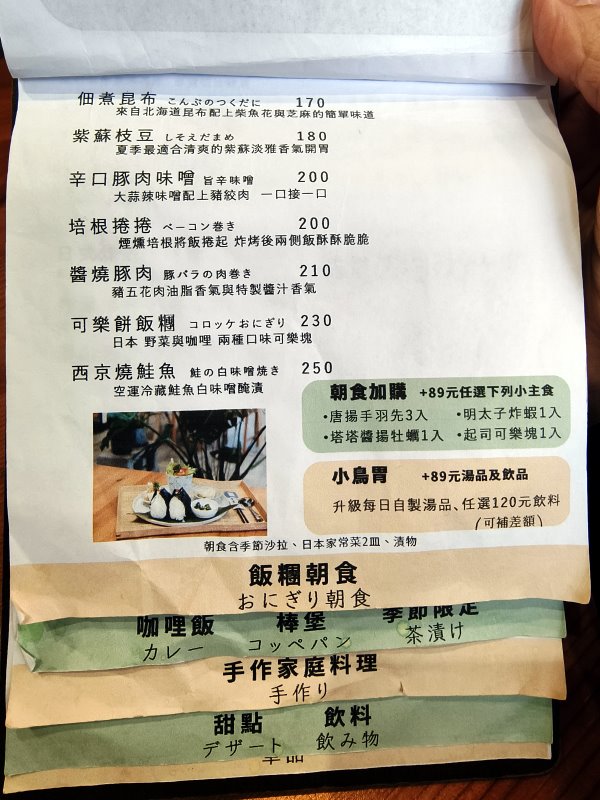 佃煮昆布 こんぶのつくだに 170
來自北海道昆布配上柴魚花與芝麻的簡單味道
紫蘇枝豆 しそえだまめ 180
夏季最適合清爽的紫蘇淡雅香氣開胃
辛口豚肉味噌 旨辛味噌 200
大蒜辣味噌配上豬絞肉 一口接一口
培根捲捲 ベーコン巻き 200
煙燻培根將飯捲起 炸烤後兩側飯酥酥脆脆
醬燒豚肉 豚バラの肉巻き 210
豬五花肉油脂香氣與特製醬汁香氣
可樂餅飯糰 コロッケおにぎり 230
日本 野菜與咖哩 兩種口味可樂塊
西京燒鮭魚 鮭の白味噌焼き 250
空運冷藏鮭魚白味噌醃漬
朝食加購 +89元任選下列小主食
·唐揚手羽先3入 ·明太子炸蝦1入
·塔塔醬揚牡蠣1入 ·起司可樂塊1入
小鳥胃 +89元湯品及飲品
升級每日自製湯品、任選120元飲料
(可補差額)
朝食含季節沙拉、日本家常菜2皿、漬物
飯糰朝食
おにぎり朝食
咖哩飯 棒堡 季節限定
カレー コッペパン 茶漬け
手作家庭料理
手作り
甜點 飲料
デザート 飲み物